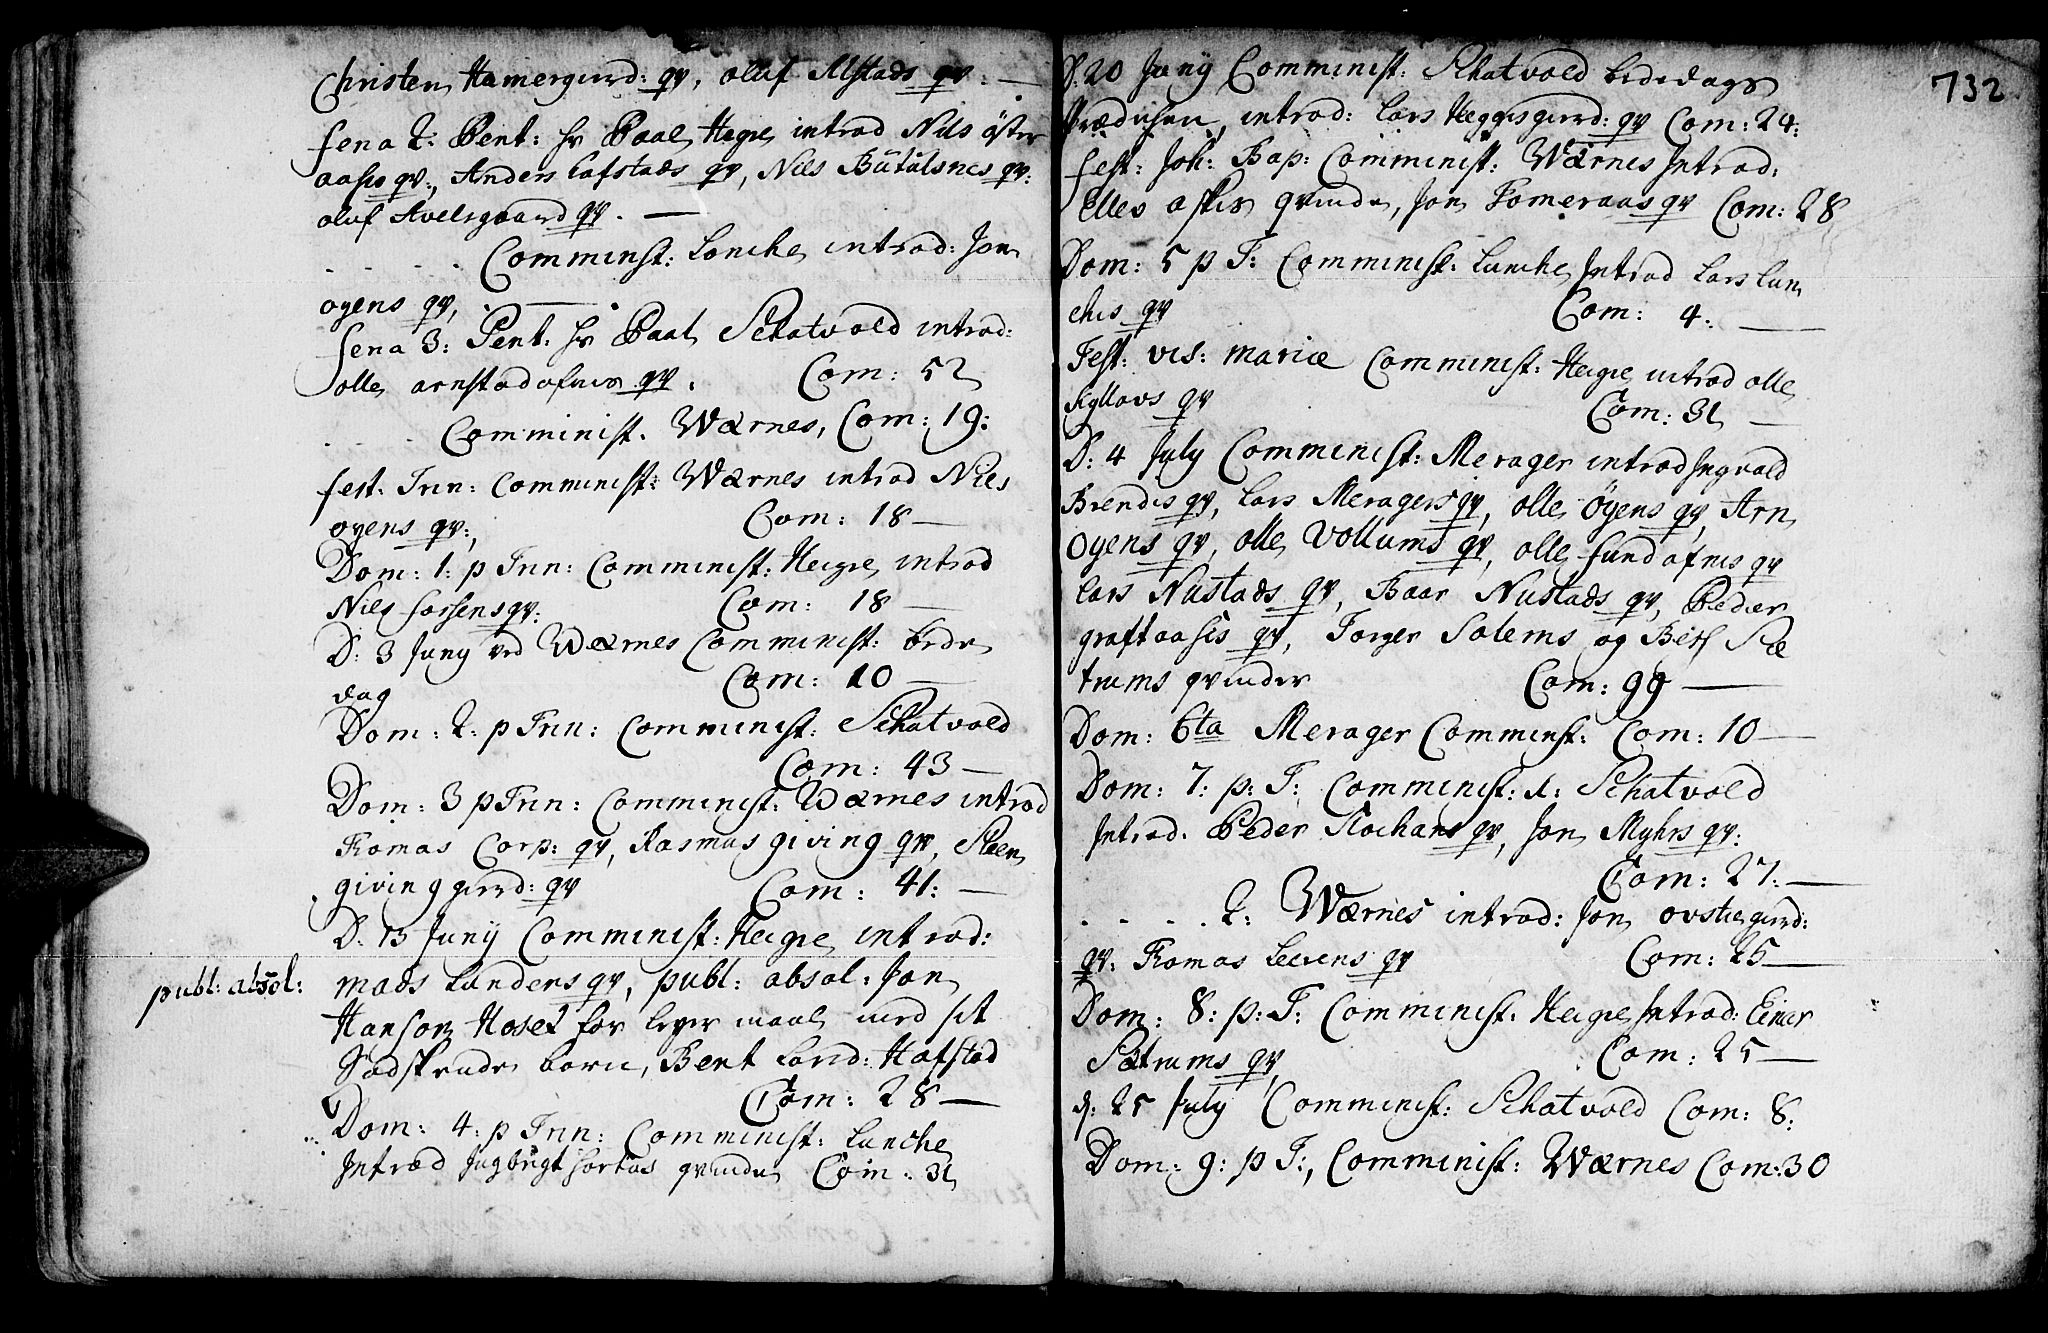 Christen Hamergurd: qv, oluf Alstads qv.
fena 2: Pent: hr Paal Hegre introd Nils öster
aases qv:, Anders Lafstads qv, Nils Bütulsnes qv:
oluf Avelsgaard qv. —
. . . . Comminist: Lonche introd: Jon
oyens qv,
fena 3: Pent: hr Paal Schatvold introd:
olle arnstadøfnes qv. Com: 52
. . . Comminist. Wærnes, Com: 19:
fest. Trin: Comminist: Wærnes introd Nils
oyens qv:, Com: 18 —
Dom: 1: p Trin: Comminist: Hegre introd
Nils forsens qv: Com: 18 —
D: 3 Juny ved Wærnes Comminist: bede
dag Com: 10 —
Dom: 2: p Trin: Comminist: Schatvold
Com: 43 —
Dom: 3 p Trin: Comminist: Wærnes introd
Tomas Corp: qv, Rasmus giving qv, Steen
giving gurd: qv Com: 41: —
D: 13 Junij Comminist: Hegre introd:
publ: absol: mads Lunders qv, publ: absol: Jon
Hanson Hoset for leyermaal med sit
Sødskende børn, Berit Lorid: Hofstad
Com: 28 —
Dom: 4: p Trin: Comminist: Lunche
Introd Ingbrigt hortes qvinde Com: 31
732
D. 20 Junij Comminist: Schatvold bededags
Prædichen, introd: Lars Heggesgurd: qv Com: 24:
fest: Joh: Bap: Comminist: Wærnes Introd:
Elles aases qvinde, Jon Fomeraas qv Com: 28
Dom: 5 p T: Comminist: Lunche Introd Lars Lun
ches qv Com: 4: —
Fest: vis: mariæ Comminist: Hegre introd olle
Com: 31 —
D: 4 July Comminist: Merager introd Ingvald
Brendes qv, Lars Meragers qv, olle Öyens qv, Arn
Oyens qv, olle Vollums qv, olle sundøfnes qv
Lars Nustads qv, Baar Nustads qv, Peder
graftaases qv, Torger Solems og Berf Sæ
trums qvinder Com: 99 —
Dom: 6ta Merager Comminst. Com: 10 —
Dom: 7: p: T: Comminist: 1: Schatvold
Introd. Peder Stochans qv, Jon Myhrs qv:
Com: 27: —
. . . . 2: Wærnes introd: Jon ovstegurd:
qv. Tomas Leerens qv Com: 25 —
Dom: 8: p: T: Comminist. Hegre Introd: Einer
Sætrums qv, Com: 25 —
d: 25 July Comminist: Schatvold Com: 8:
Dom: 9: p T:, Comminist: Wærnes Com: 30